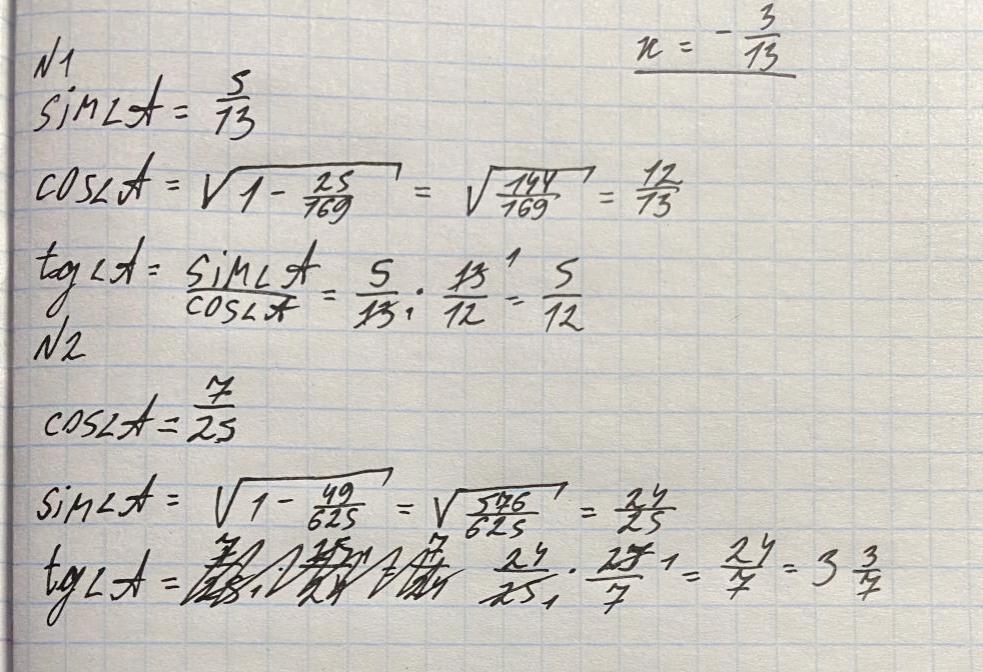 x = - 3/13
N1
sin∠A = 5/13
cos∠A = √(1 - 25/169) = √(144/169) = 12/13
tg∠A = sin∠A/cos∠A = 5/13 · 13/12 = 5/12
N2
cos∠A = 7/25
sin∠A = √(1 - 49/625) = √(576/625) = 24/25
tg∠A = 24/25 · 25/7 = 24/7 = 3 3/7